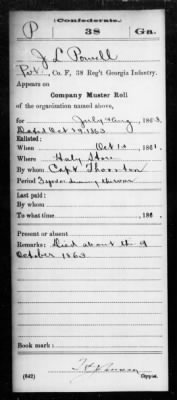 Confederate.
P 38 Ga.
J L Powell
Pvt., Co. F, 38 Reg't Georgia Infantry.
Appears on
Company Muster Roll
of the organization named above,
for July & Aug, 1863.
Dated Oct 29 1863
Enlisted:
When Oct 1, 1861.
Where Haly Store
By whom Capt Thornton
Period 3 years or during the war
Last paid:
By whom
To what time , 186 .
Present or absent
Remarks: Died about the 9
October 1863.
Book mark:
(642) Copyist.